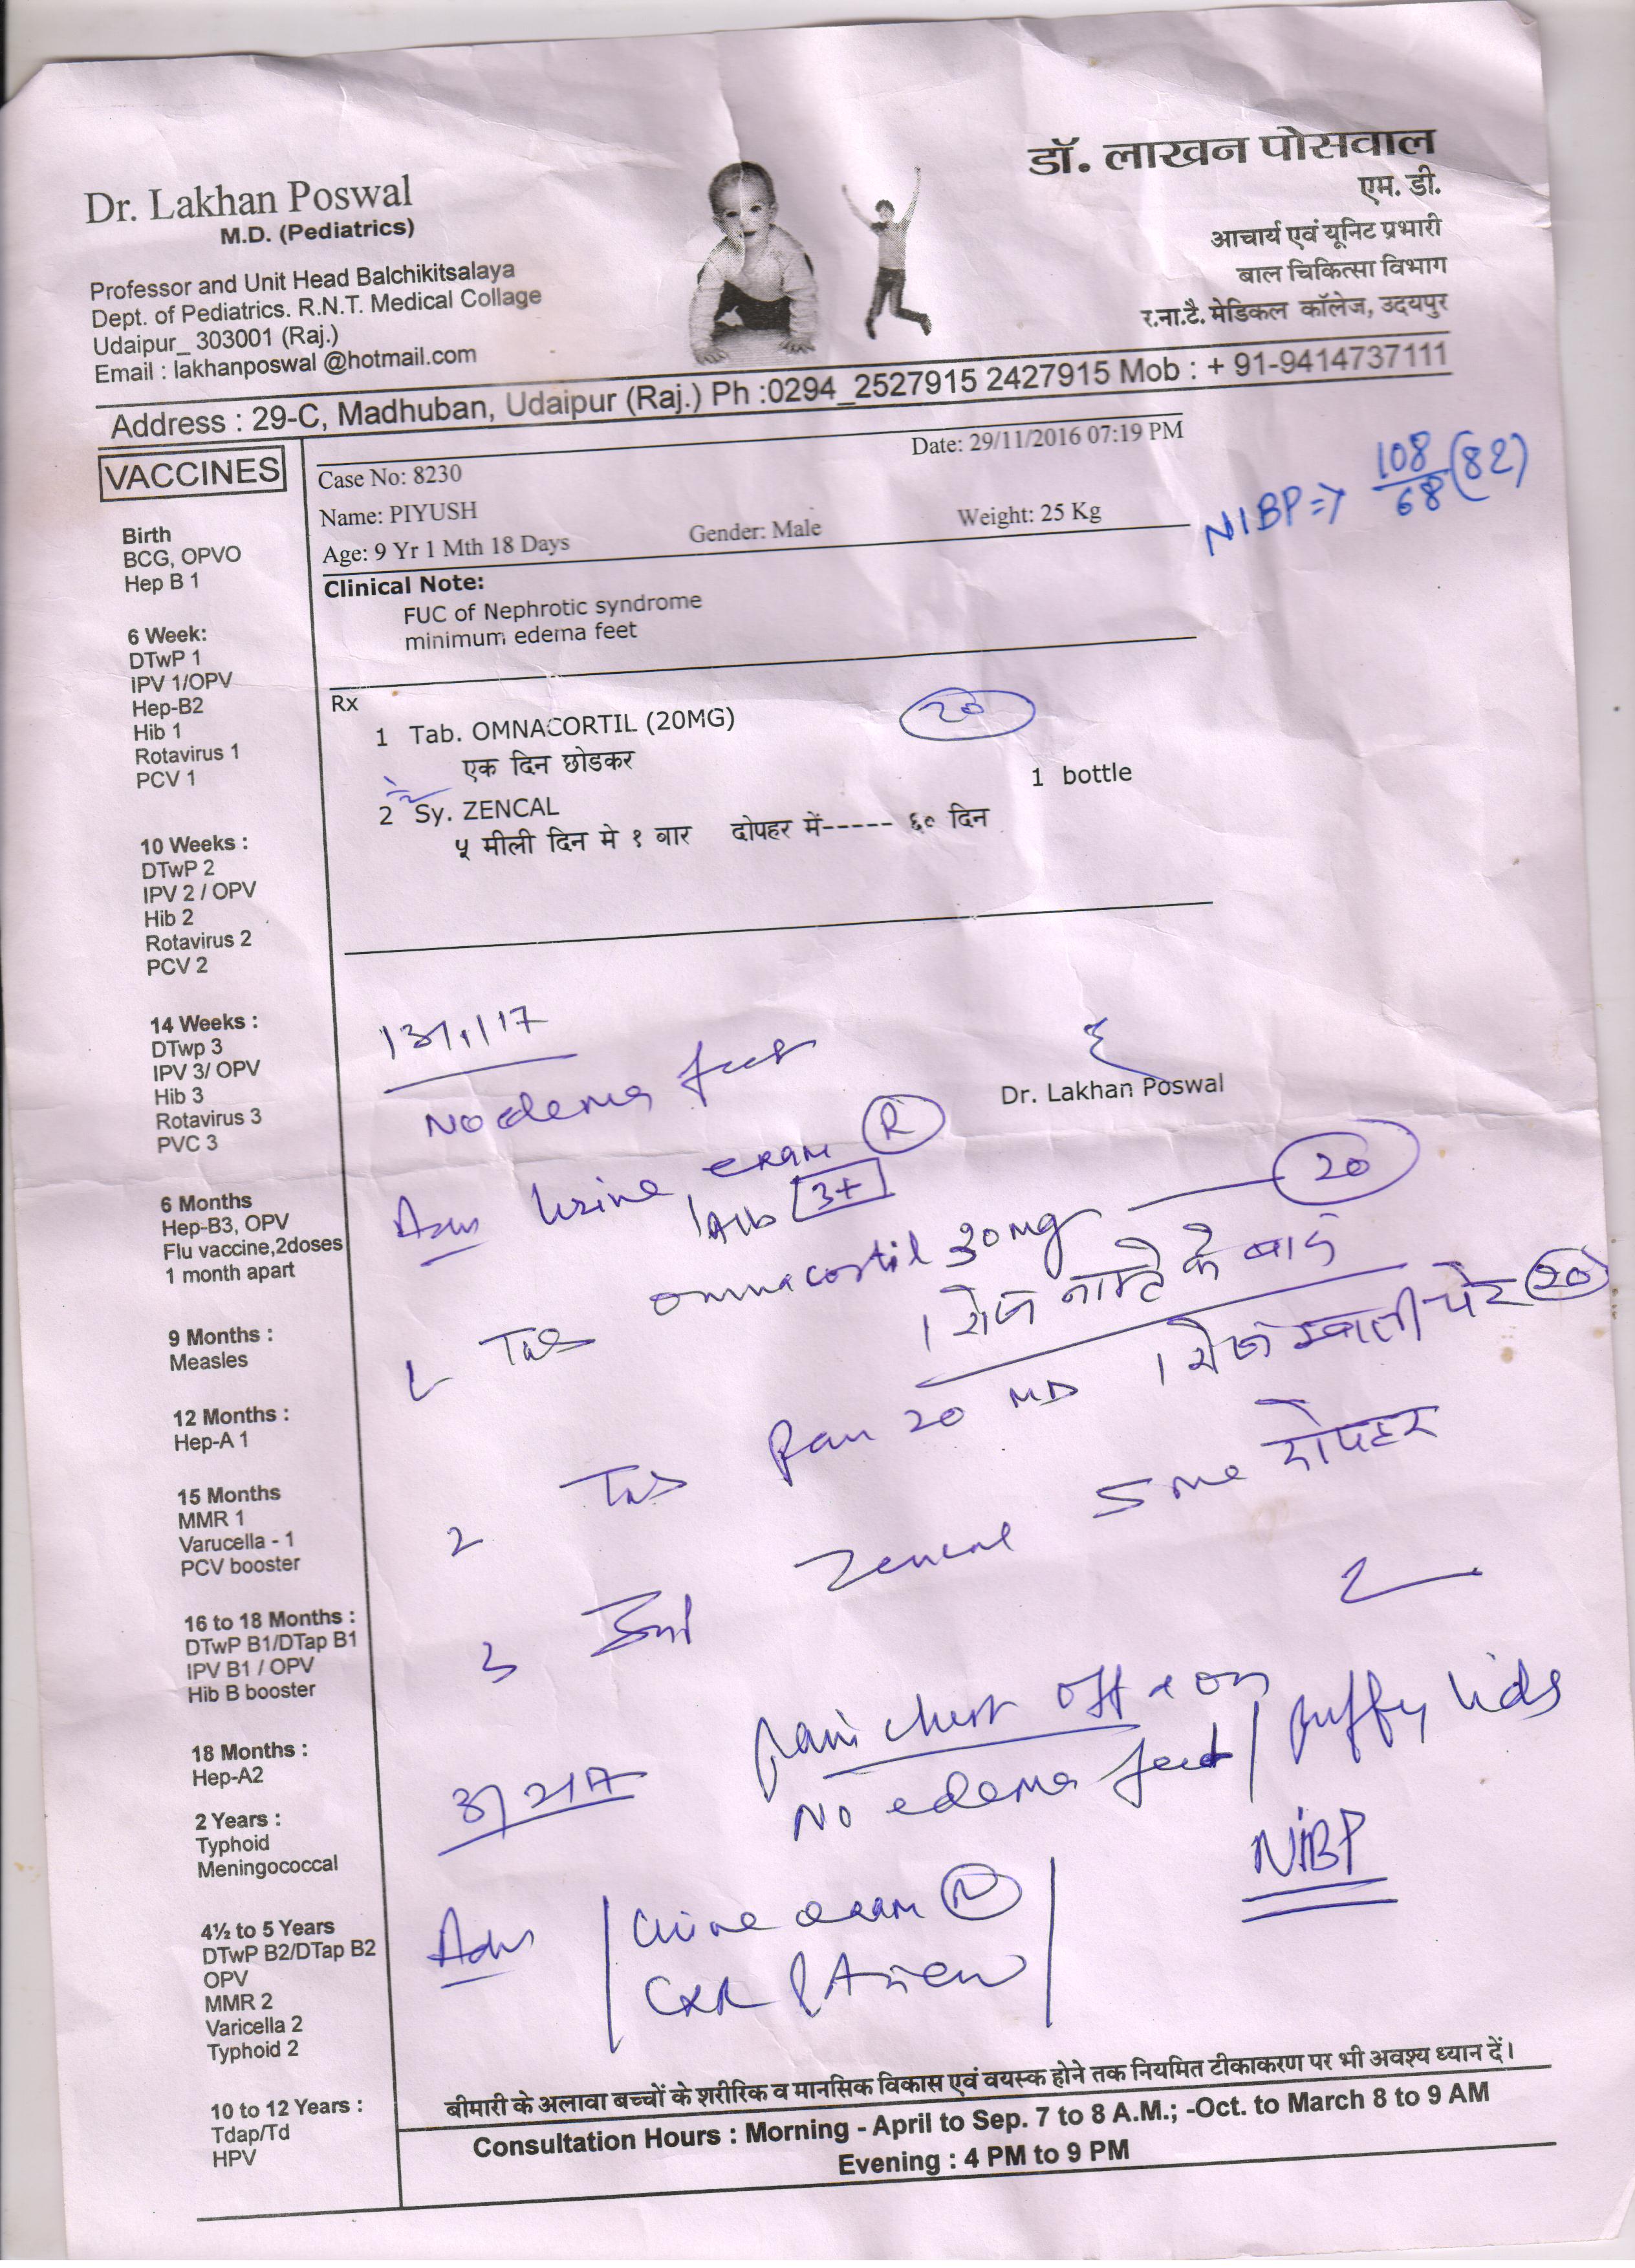 Dr. Lakhan Poswal
M.D. (Pediatrics)
Professor and Unit Head Balchikitsalaya
Dept. of Pediatrics. R.N.T. Medical Collage
Udaipur_ 303001 (Raj.)
Email : lakhanposwal @hotmail.com
डॉ. लाखन पोसवाल
एम. डी.
आचार्य एवं यूनिट प्रभारी
बाल चिकित्सा विभाग
र.ना.टै. मेडिकल कॉलेज, उदयपुर
Address : 29-C, Madhuban, Udaipur (Raj.) Ph :0294_2527915 2427915 Mob : + 91-9414737111
VACCINES
Birth
BCG, OPVO
Hep B 1
6 Week:
DTwP 1
IPV 1/OPV
Hep-B2
Hib 1
Rotavirus 1
PCV 1
10 Weeks :
DTwP 2
IPV 2 / OPV
Hib 2
Rotavirus 2
PCV 2
14 Weeks :
DTwp 3
IPV 3/ OPV
Hib 3
Rotavirus 3
PVC 3
6 Months
Hep-B3, OPV
Flu vaccine,2doses
1 month apart
9 Months :
Measles
12 Months :
Hep-A 1
15 Months
MMR 1
Varucella - 1
PCV booster
16 to 18 Months :
DTwP B1/DTap B1
IPV B1 / OPV
Hib B booster
18 Months :
Hep-A2
2 Years :
Typhoid
Meningococcal
4½ to 5 Years
DTwP B2/DTap B2
OPV
MMR 2
Varicella 2
Typhoid 2
10 to 12 Years :
Tdap/Td
HPV
Date: 29/11/2016 07:19 PM
Case No: 8230
Name: PIYUSH
Age: 9 Yr 1 Mth 18 Days Gender: Male Weight: 25 Kg
NIBP => 108/68 (82)
Clinical Note:
FUC of Nephrotic syndrome
minimum edema feet
Rx
1 Tab. OMNACORTIL (20MG) 20
एक दिन छोडकर
2 Sy. ZENCAL 1 bottle
५ मीली दिन मे १ बार दोपहर में----- ६० दिन
13/1/17
No edema feet
Dr. Lakhan Poswal
Adv Urine exam R
Alb 3+
1 Tab omnacortil 30mg 20
1 रोज नाश्ते के बाद
2 Tab Pan 20 MD 1 रोज खाली पेट 20
3 Zencal 5 ml दोपहर
3/2/17 pain chest off & on
No edema feet / puffy lids
NIBP
Adv Urine exam R
CXR PA view
बीमारी के अलावा बच्चों के शरीरिक व मानसिक विकास एवं वयस्क होने तक नियमित टीकाकरण पर भी अवश्य ध्यान दें।
Consultation Hours : Morning - April to Sep. 7 to 8 A.M.; -Oct. to March 8 to 9 AM
Evening : 4 PM to 9 PM